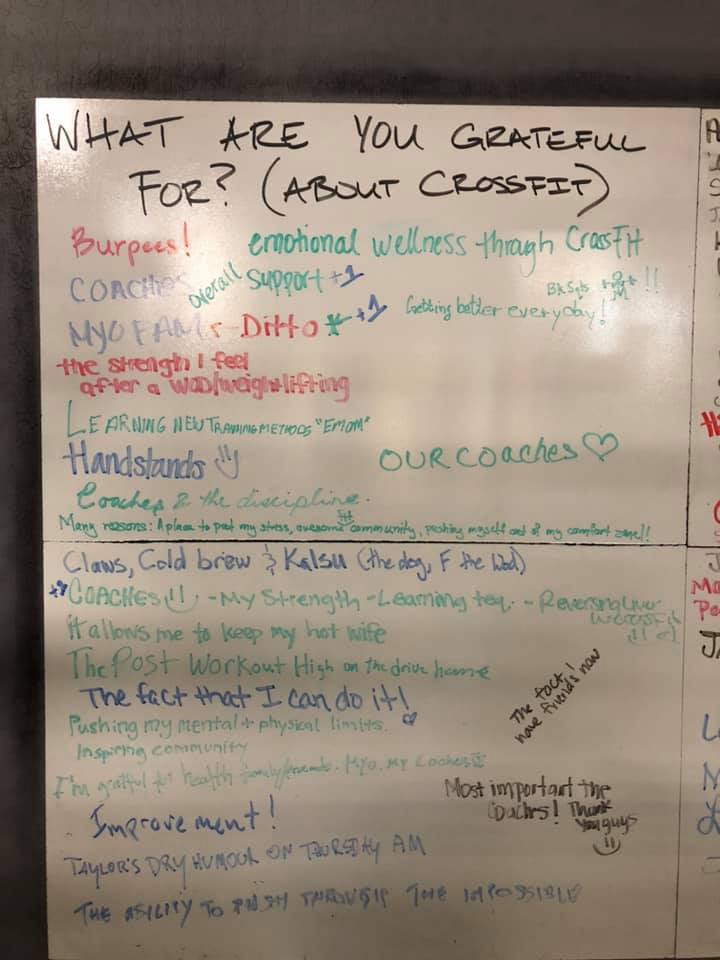 WHAT ARE YOU GRATEFUL
FOR? (ABOUT CROSSFIT)
Burpees! emotional wellness through CrossFit
COACHES overall support +1
MYO FAM - Ditto * +1 Getting better everyday!
the strength I feel
after a WOD/weightlifting
LEARNING NEW TRAINING METHODS "EMOM"
Handstands
OUR COACHES ♡
Coaches & the discipline.
Many reasons: A place to put my stress, awesome community, pushing myself out of my comfort zone!!
Claws, Cold brew & Kalsu (the dog, F the Wod)
COACHES - My Strength - Learning teq. - Reversing
it allows me to keep my hot wife
The Post Workout High on the drive home
The fact that I can do it!
The fact I
have friends now
Pushing my mental + physical limits.
Inspiring community
I'm grateful for health family/friends. Myo. My Coaches
Most important the
Coaches! Thank
You guys
Improvement!
TAYLOR'S DRY HUMOUR ON THURSDAY AM
THE ABILITY TO PUSH THROUGH THE IMPOSSIBLE